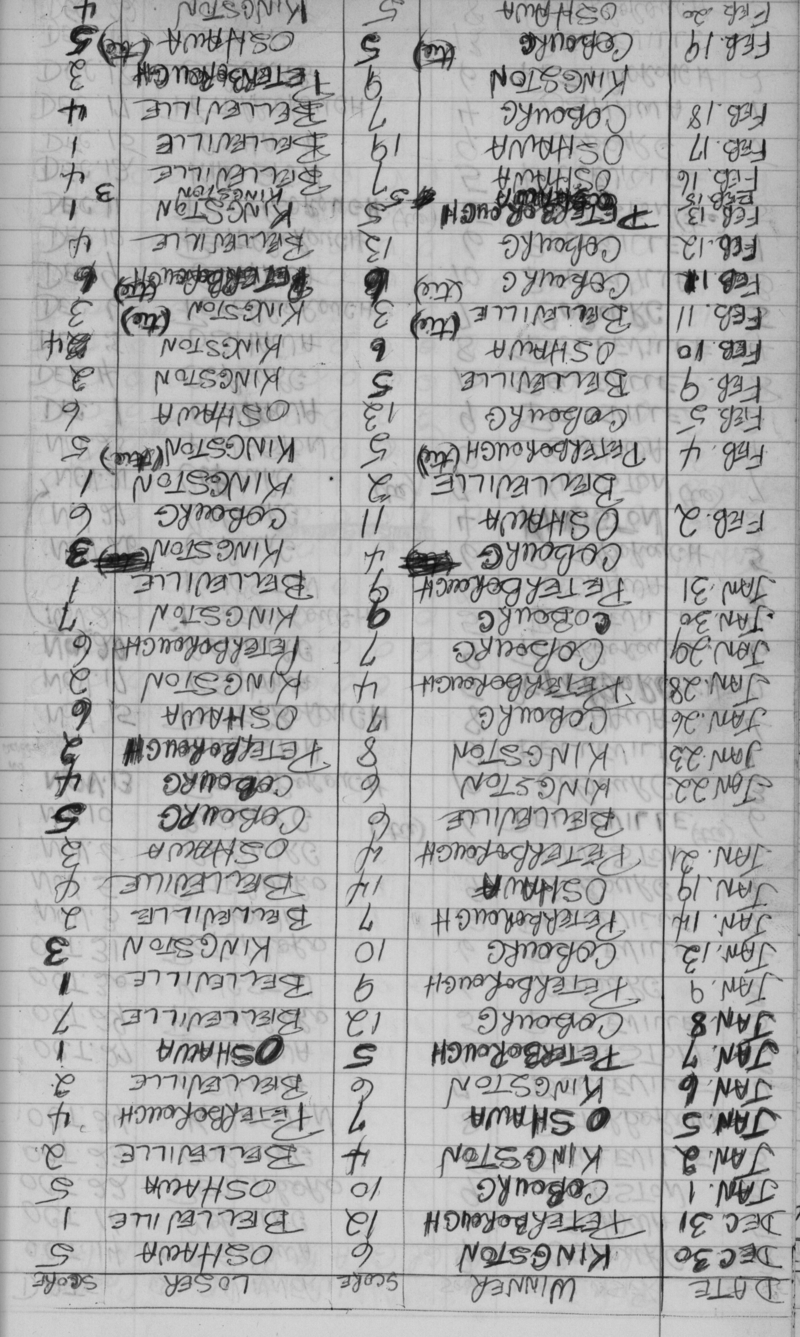 DATE WINNER SCORE LOSER SCORE
DEC 30 KINGSTON 6 OSHAWA 5
DEC. 31 PETERBOROUGH 12 BELLEVILLE 1
JAN. 1 COBOURG 10 OSHAWA 5
JAN. 2 KINGSTON 4 BELLEVILLE 2.
JAN. 5 OSHAWA 7 PETERBOROUGH 4
JAN. 6 KINGSTON 6 BELLEVILLE 2.
JAN. 7 PETERBOROUGH 5 OSHAWA 1
JAN 8 COBOURG 12 BELLEVILLE 7
JAN. 9 PETERBOROUGH 9 BELLEVILLE 1
JAN. 12 COBOURG 10 KINGSTON 3
JAN. 14 PETERBOROUGH 7 BELLEVILLE 2
JAN. 19 OSHAWA 14 BELLEVILLE 4
JAN. 21 PETERBOROUGH 4 OSHAWA 3
BELLEVILLE 6 COBOURG 5
JAN. 22 KINGSTON 6 COBOURG 4
JAN. 23 KINGSTON 8 PETERBOROUGH 2
JAN. 26 COBOURG 7 OSHAWA 6
JAN. 28 PETERBOROUGH 4 KINGSTON 2
JAN. 29 COBOURG 7 PETERBOROUGH 6
JAN. 30 COBOURG 9 KINGSTON 7
JAN. 31 PETERBOROUGH 9 BELLEVILLE 1
COBOURG 4 KINGSTON 3
FEB. 2 OSHAWA 11 COBOURG 6
BELLEVILLE 2 KINGSTON 1
FEB. 4 PETERBOROUGH (tie) 5 KINGSTON (tie) 5
FEB. 5 COBOURG 12 OSHAWA 6
FEB. 9 BELLEVILLE 5 KINGSTON 2
FEB. 10 OSHAWA 6 KINGSTON 4
FEB. 11 BELLEVILLE (tie) 3 KINGSTON (tie) 3
FEB 11 COBOURG (tie) 6 PETERBOROUGH (tie) 6
FEB. 12 COBOURG 13 BELLEVILLE 4
FEB. 13 PETERBOROUGH 5 KINGSTON 1
FEB. 15 OSHAWA 5 KINGSTON 3
FEB. 16 OSHAWA 7 BELLEVILLE 4
FEB. 17 OSHAWA 19 BELLEVILLE 1
FEB. 18 COBOURG 7 BELLEVILLE 4
KINGSTON 9 PETERBOROUGH 2
FEB. 19 COBOURG (tie) 5 OSHAWA (tie) 5
FEB. 20 OSHAWA 5 KINGSTON 4